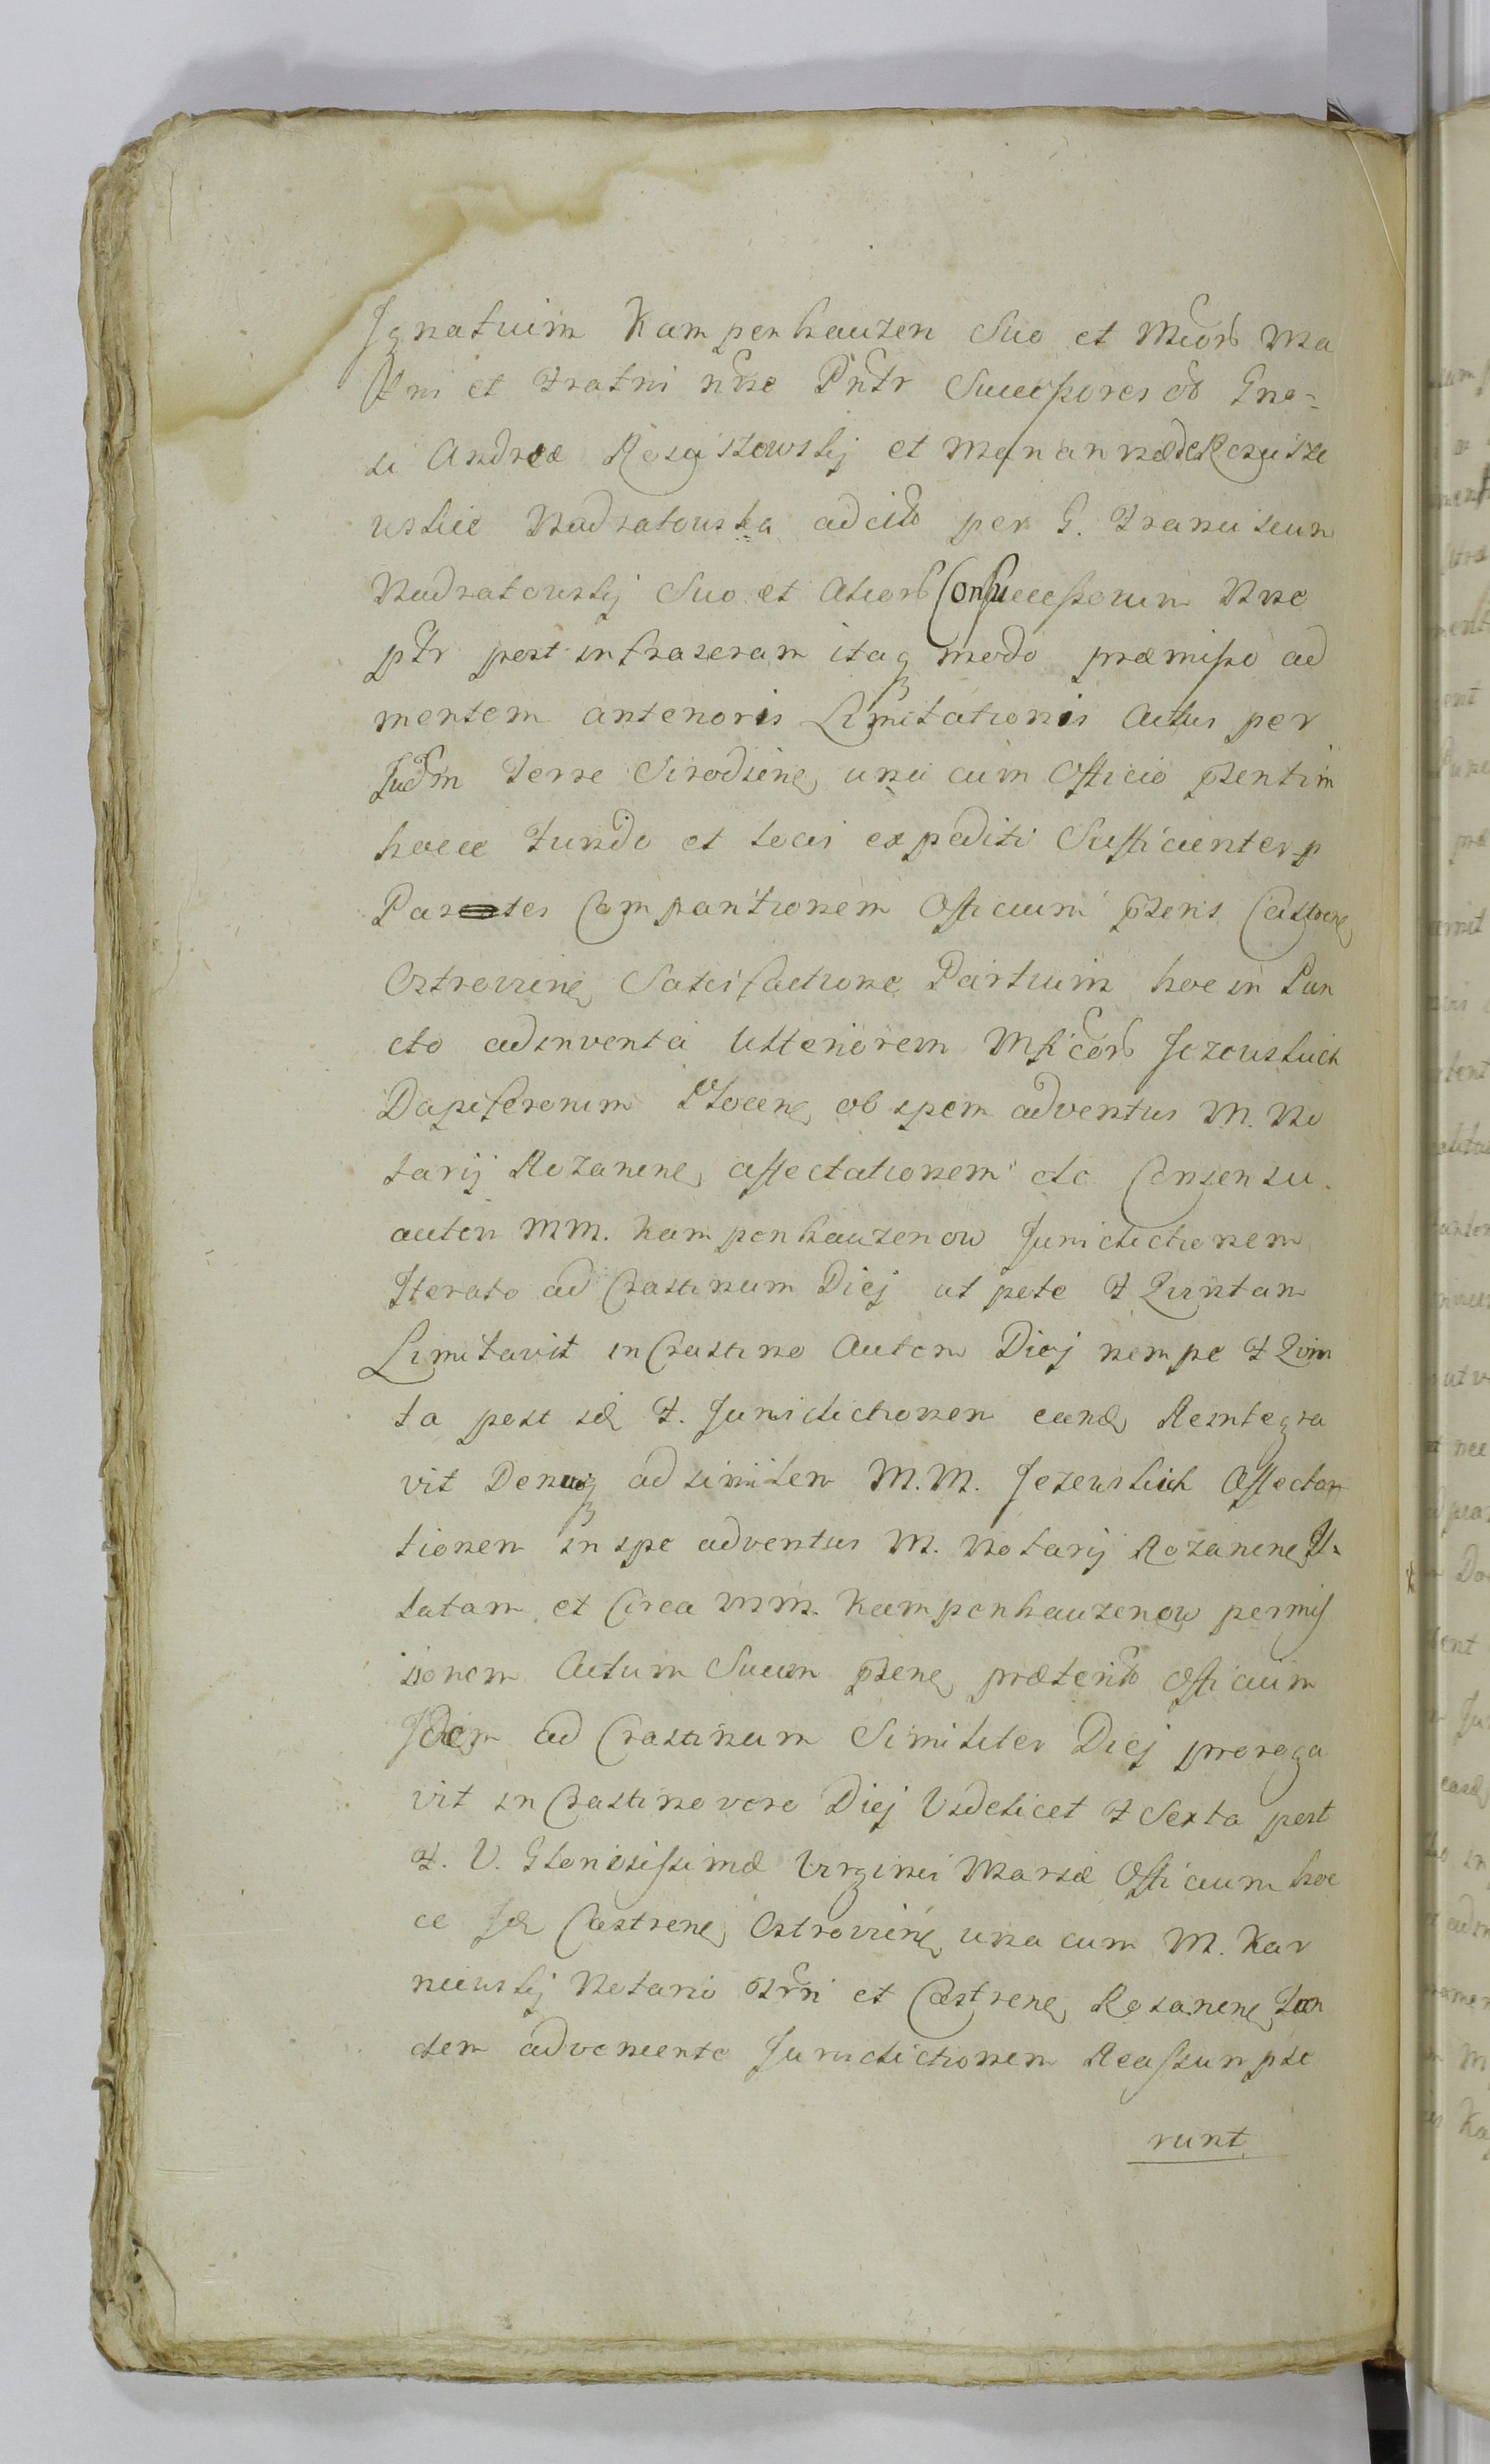 Ignatium Kampenhauzen Suo et Mtiorb Ma
ttni et Fratni nrne Pntr Successores ob Gne-
si Andreæ Rosciszewskij et Mariannæ de Roscisze
wskie Nadratowska adcitb per G. Franciscum
Nadratowskij Suo et Aliorb Consuccessorum Nne
ptr post infrascram itaq modo præmisso ad
mentem anterioris Limitationis Actus per
Judm Terre Siradiene, una cum Officio psentim
hocce Fundo et loci expediti Sufficienter p
Partes Comparitionem Officium psens Castrene,
Ostroviene, Satisfactione Partium hoc in Pun
cto adinventa Ulteriorem Mficorb Jezowskich
Dapiferorum Plocene, ob spem adventus M. No
tarij Rozanene, affectationem de Consensu
autem MM. Kampenhauzenow Jurisdictionem
Iterato ad Crastinum Diej ut pote F Quintam
Limitavit in Crastino Autem Diej nempe F Quin
ta post id F. Jurisdictionem eand, Reintegra
vit Denuoq ad similem M.M. Jezewskich Affecta
tionem in spe adventus M. Notarij Rozanene, Il
latam et Circa MM. Kampenhauzenow permis
sionem Actum Suum psene, præteritb Officium
Idem ad Crastinum Similiter Diej proroga
vit in Crastino vero Diej Videlicet F Sexta post
F. V. Gloriosissimæ Virginis Mariæ Officium hoc
ce Id Castrene, Ostroviene, una cum M. Kar
niewskij Notario Trri et Castrene, Rozanene, Tan
dem adveniente Jurisdictionem Reassumpse
runt